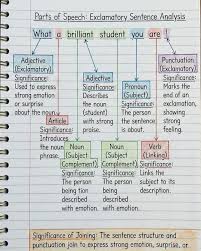 Parts of Speech: Exclamatory Sentence Analysis
What a brilliant student you are !
Adjective
(Exclamatory)
Significance:
Used to express
strong emotion
or surprise
about the noun.
Article
Significance:
Introduces
the noun
phrase.
Adjective
Significance:
Describes
the noun
(student)
with strong
praise.
Noun
(Subject
Complement)
Significance:
The person
being
described
with emotion.
Pronoun
(Subject)
Significance:
The person
being
about.
Noun
(Subject
Complement)
Significance:
The person
being
described
with emotion.
Verb
(Linking)
Significance:
Links the
subject to its
description.
Punctuation
(Exclamatory)
Significance:
Marks the
end of an
exclamation,
showing
strong
feeling.
Significance of Joining: The sentence structure and
punctuation join to express strong emotion, surprise, or